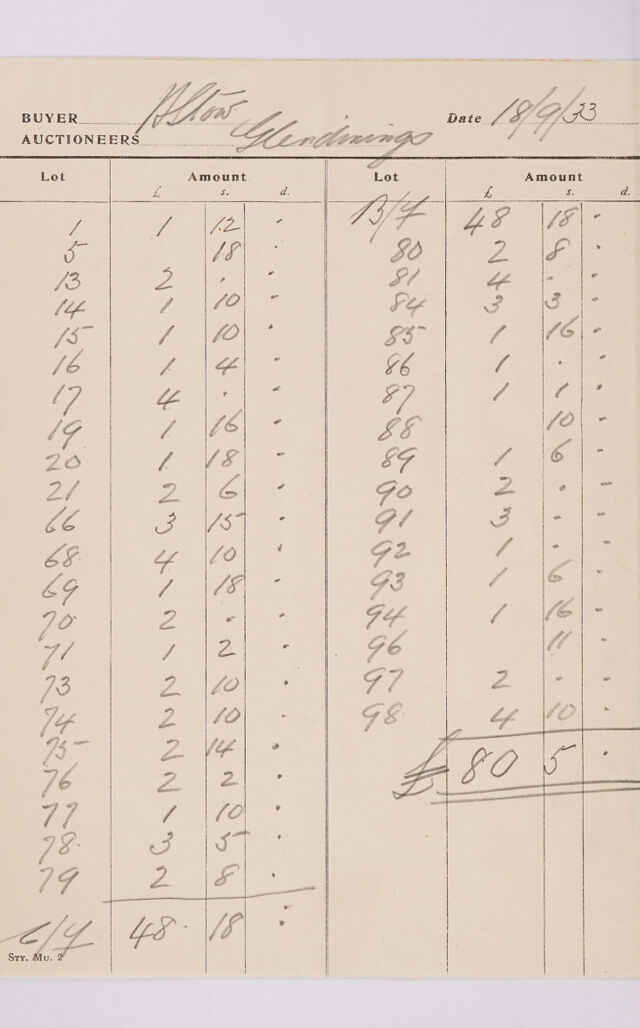 BUYER Stow Date 18/9/33
AUCTIONEERS Glendinings
Lot Amount
£ s. d.
1 1 12 "
5 18 "
13 2 . "
14 1 10 "
15 1 10 "
16 1 4 "
17 4 . "
19 1 16 "
20 1 18 "
21 2 6 "
66 3 15 "
68 4 10 "
69 1 18 "
70 2 - "
71 1 2 "
73 2 10 .
74 2 10 .
75 2 14 .
76 2 2 .
77 1 10 .
78 3 5 .
79 2 8 .
C/F 48 18 :
STY. MU. 2
Lot Amount
£ s. d.
B/F 48 18 .
80 2 8 .
81 4 . .
84 3 3 .
85 1 16 .
86 1 . .
87 1 1 .
88 10 -
89 1 6 .
90 2 . -
91 3 - -
92 1 . -
93 1 6 -
94 1 16 -
96 11 -
97 2 - -
98 4 10 -
£ 80 5 .